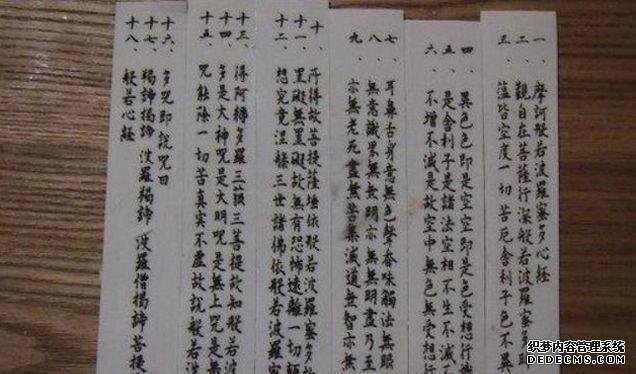 一、摩訶般若波羅蜜多心經
二、觀自在菩薩行深般若波羅蜜多
三、蘊皆空度一切苦厄舍利子色不異
四、異色色即是空空即是色受想行
五、是舍利子是諸法空相不生不滅
六、不增不減是故空中無色無受想行
七、耳鼻舌身意無色聲香味觸法無眼
八、無意識界無無明亦無無明盡乃至
九、亦無老死盡無苦集滅道無智亦無
十、所得故菩提薩埵依般若波羅蜜多
十一、罣礙無罣礙故無有恐怖遠離一切顛
十二、想究竟涅槃三世諸佛依般若波羅蜜
十三、得阿耨多羅三藐三菩提故知般若波
十四、多是大神咒是大明咒是無上咒是無
十五、咒能除一切苦真實不虛故說般若波
十六、多咒即說咒曰
十七、羯諦羯諦 波羅羯諦 波羅僧羯諦 菩提
十八、般若心經
织梦内容管理系统
DEDECMS.COM